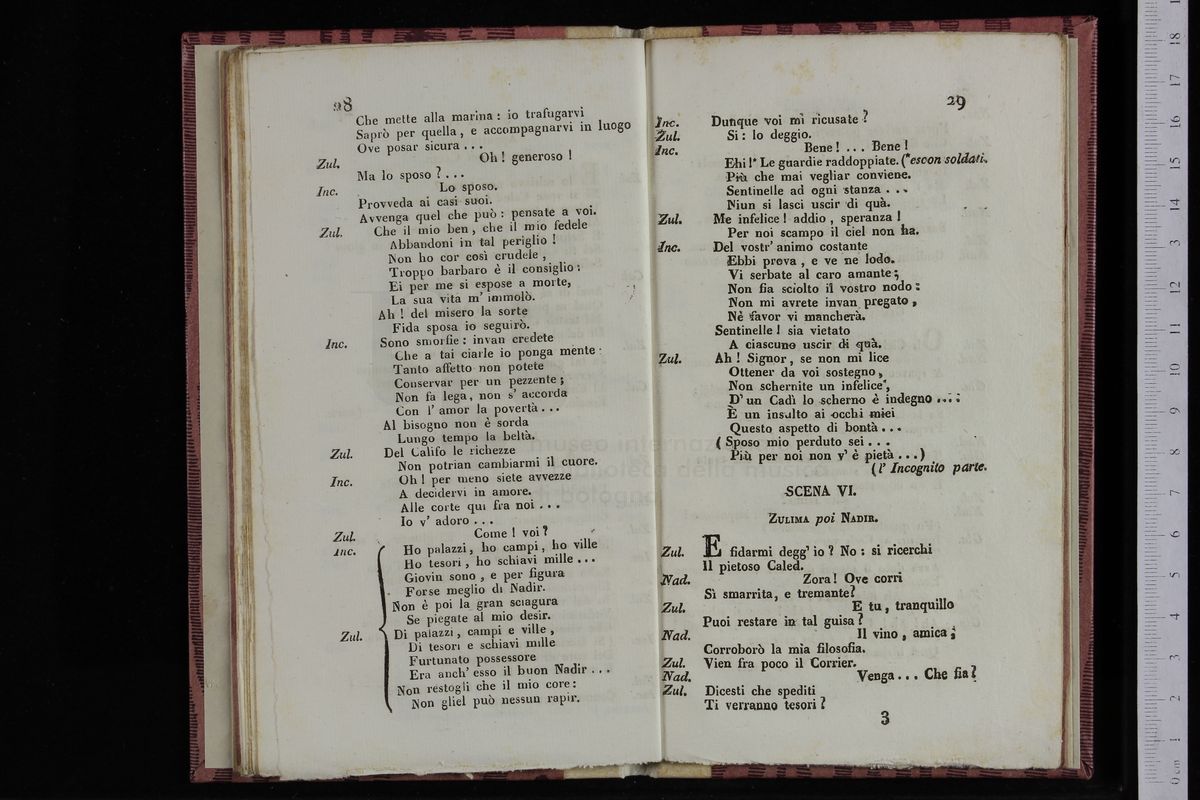 28
Che mette alla marina : io trafugarvi
Saprò per quella, e accompagnarvi in luogo
Ove posar sicura ...
Zul. Oh ! generoso !
Ma lo sposo ? ...
Inc. Lo sposo.
Provveda ai casi suoi.
Avvenga quel che può : pensate a voi.
Zul. Che il mio ben, che il mio fedele
Abbandoni in tal periglio !
Non ho cor così crudele,
Troppo barbaro è il consiglio :
Ei per me si espose a morte,
La sua vita m' immolò.
Ah ! del misero la sorte
Fida sposa io seguirò.
Inc. Sono smorfie : invan credete
Che a tai ciarle io ponga mente :
Tanto affetto non potete
Conservar per un pezzente ;
Non fa lega, non s' accorda
Con l' amor la povertà ...
Al bisogno non è sorda
Lungo tempo la beltà.
Zul. Del Califo le richezze
Non potrian cambiarmi il cuore.
Inc. Oh ! per meno siete avvezze
A decidervi in amore.
Alle corte qui fra noi ...
Io v' adoro ...
Zul. Come ! voi ?
Inc. Ho palazzi, ho campi, ho ville
Ho tesori, ho schiavi mille ...
Giovin sono, e per figura
Forse meglio di Nadir.
Non è poi la gran sciagura
Se piegate al mio desir.
Zul. Di palazzi, campi e ville,
Di tesori e schiavi mille
Furtunato possessore
Era anch' esso il buon Nadir ...
Non restogli che il mio core :
Non gliel può nessun rapir.
29
Inc. Dunque voi mi ricusate ?
Zul. Si : lo deggio.
Inc. Bene ! ... Bene !
Ehi !* Le guardie raddoppiate. (*escon soldati.
Più che mai vegliar conviene.
Sentinelle ad ogni stanza ...
Niun si lasci uscir di quà.
Zul. Me infelice ! addio, speranza !
Per noi scampo il ciel non ha.
Inc. Del vostr' animo costante
Ebbi prova, e ve ne lodo.
Vi serbate al caro amante ;
Non fia sciolto il vostro nodo :
Non mi avrete invan pregato,
Nè favor vi mancherà.
Sentinelle ! sia vietato
A ciascuno uscir di quà.
Zul. Ah ! Signor, se non mi lice
Ottener da voi sostegno,
Non schernite un infelice,
D' un Cadì lo scherno è indegno ....
È un insulto ai occhi miei
Questo aspetto di bontà ...
( Sposo mio perduto sei ...
Più per noi non v' è pietà ...)
(l' Incognito parte.
SCENA VI.
ZULIMA poi NADIR.
Zul. E fidarmi degg' io ? No : si ricerchi
Il pietoso Caled.
Nad. Zora ! Ove corri
Sì smarrita, e tremante?
Zul. E tu, tranquillo
Puoi restare in tal guisa ?
Nad. Il vino, amica ;
Corroborò la mia filosofia.
Zul. Vien fra poco il Corrier.
Nad. Venga ... Che fia ?
Zul. Dicesti che spediti
Ti verranno tesori ?
3
museo internaz
biblioteca della musica
di bologna
0 cm 1 2 3 4 5 6 7 8 9 10 11 12 13 14 15 16 17 18